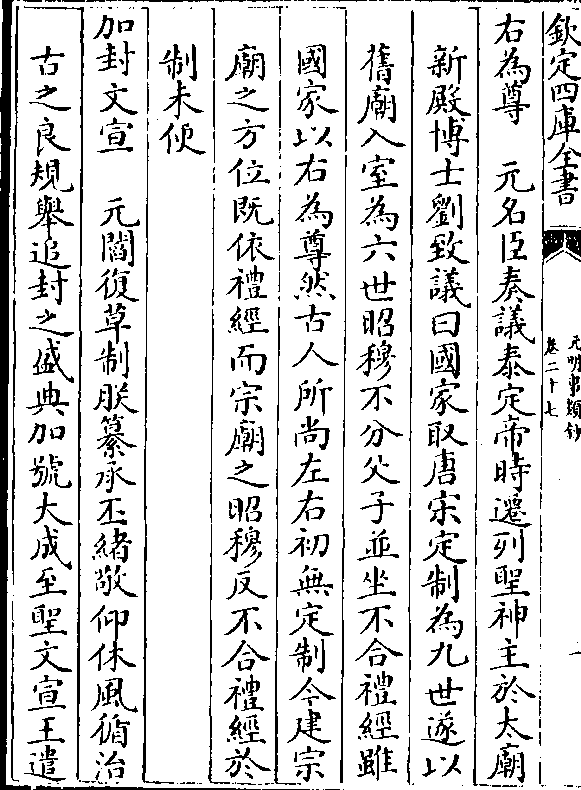 欽定四庫全書
元明事類鈔
卷二十七
一
右為尊　元名臣奏議泰定帝時遷列聖神主於太廟
新殿博士劉致議曰國家取唐宋定制為九世遂以
舊廟入室為六世昭穆不分父子並坐不合禮經雖
國家以右為尊然古人所尚左右初無定制今建宗
廟之方位既依禮經而宗廟之昭穆反不合禮經於
制未便
加封文宣　元閻復草制朕纂承丕緒敬仰休風循治
古之良規舉追封之盛典加號大成至聖文宣王遣